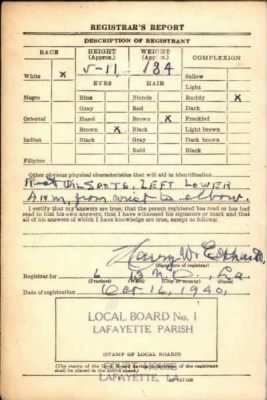 REGISTRAR'S REPORT
DESCRIPTION OF REGISTRANT
RACE HEIGHT (Approx.) WEIGHT (Approx.) COMPLEXION
5-11 184
White x EYES HAIR Sallow
Light
Negro Blue Blonde Ruddy x
Gray Red Dark
Oriental Hazel Brown x Freckled
Brown x Black Light brown
Indian Black Gray Dark brown
Bald Black
Filipino
Other obvious physical characteristics that will aid in identification
SPOTS, LEFT LOWER
ARM, from wrist to elbow.
I certify that my answers are true; that the person registered has read or has had
read to him his own answers; that I have witnessed his signature or mark and that
all of his answers of which I have knowledge are true, except as follows:
Harry W.
(Signature of registrar)
Registrar for 6 La.
(Precinct) (Ward) (City or county) (State)
Date of registration Oct 16, 1940.
LOCAL BOARD No. 1
LAFAYETTE PARISH
(STAMP OF LOCAL BOARD)
COURT HOUSE
LAFAYETTE, LA.